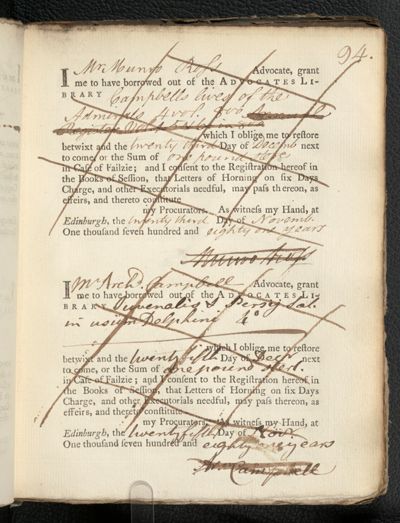 94.
I Mr Munro Ross Advocate, grant
me to have borrowed out of the ADVOCATES LI-
BRARY Campbells lives of the
Admirals 4 vol. 8vo
which I oblige me to reſtore
betwixt and the twenty third Day of Decemb next
to come, or the Sum of one pound Ster
in Caſe of Failzie; and I conſent to the Regiſtration hereof in
the Books of Seſſion, that Letters of Horning on ſix Days
Charge, and other Executorials needful, may paſs thereon, as
effeirs, and thereto conſtitute
my Procurators. As witneſs my Hand, at
Edinburgh, the twenty third Day of Novemb.
One thouſand ſeven hundred and eighty one years
Munro Ross
I Mr Archd. Campbell Advocate, grant
me to have borrowed out of the ADVOCATES LI-
BRARY Juvenalis & Persij Sat.
in usum Delphini 4o
which I oblige me to reſtore
betwixt and the twenty fifth Day of Decr next
to come, or the Sum of one pound sterl.
in Caſe of Failzie; and I conſent to the Regiſtration hereof in
the Books of Seſſion, that Letters of Horning on ſix Days
Charge, and other Executorials needful, may paſs thereon, as
effeirs, and thereto conſtitute
my Procurators. As witneſs my Hand, at
Edinburgh, the twenty fifth Day of Nov.
One thouſand ſeven hundred and eighty one years
Ar. Campbell